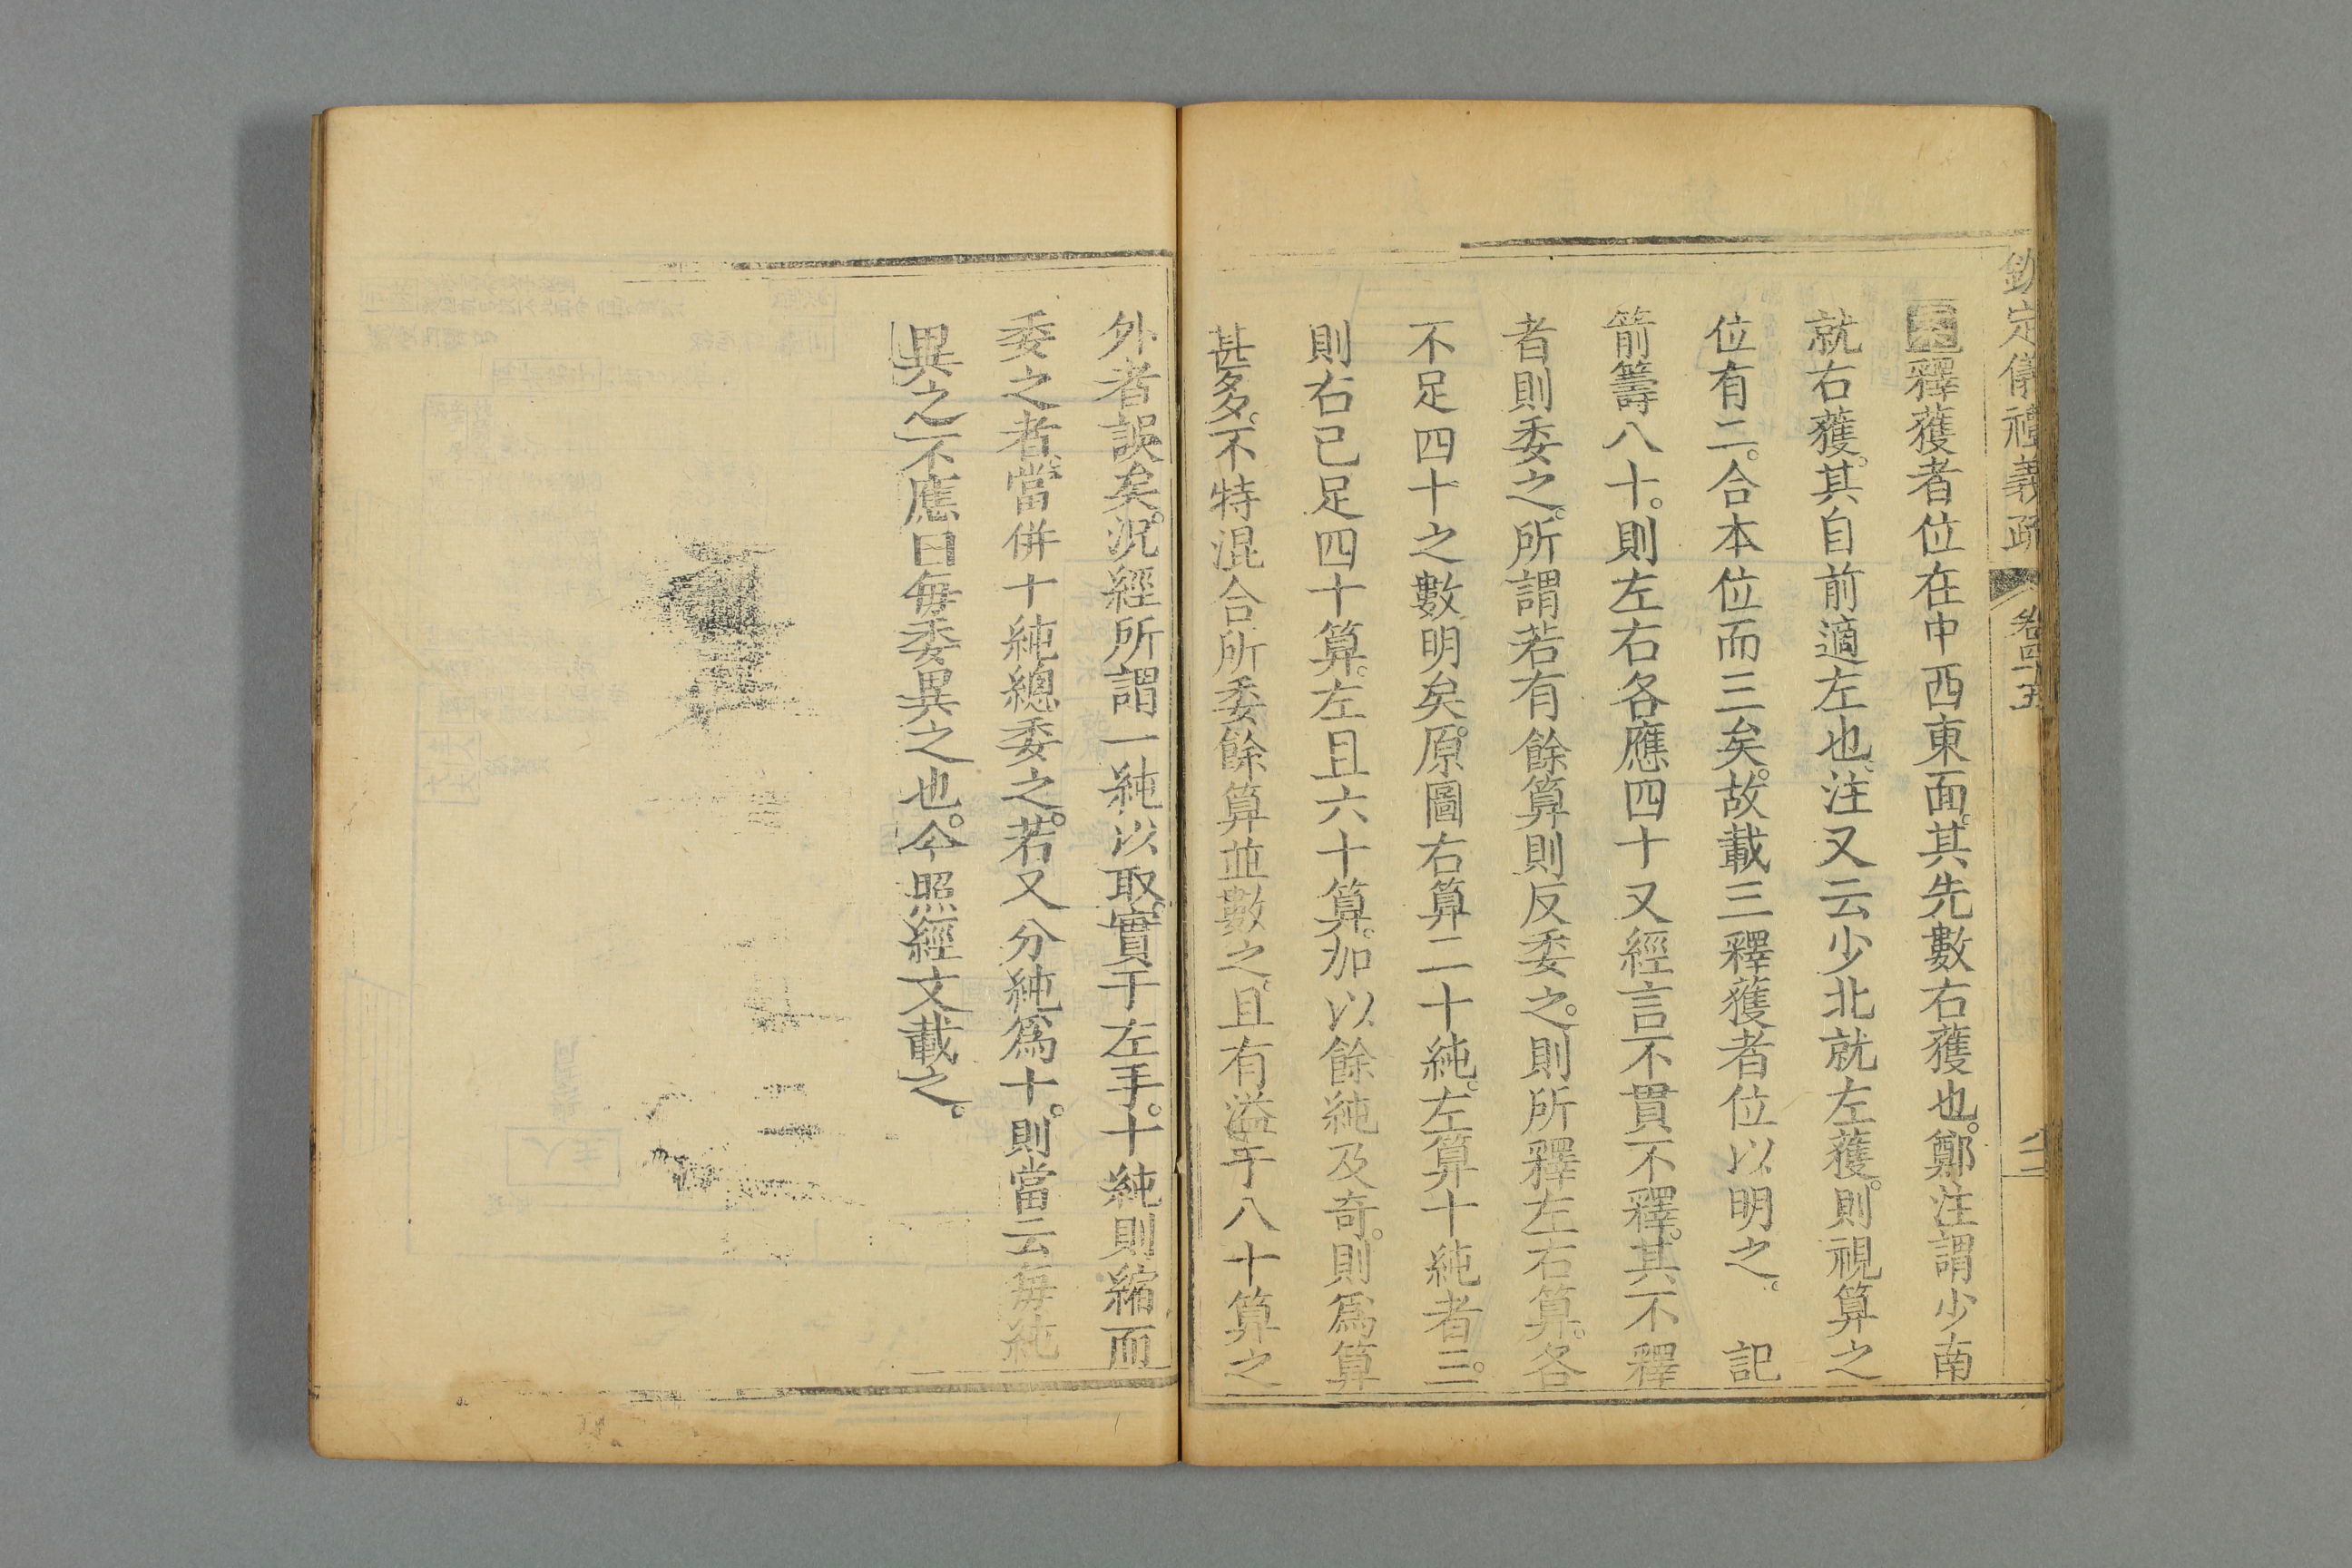 欽定儀禮義疏 卷四十五
釋獲者位在中西東面。其先數右獲也。鄭注謂少南
就右獲。其自前適左也。注又云少北就左獲。則視算之
位有二。合本位而三矣。故載三釋獲者位以明之。 記
箭籌八十。則左右各應四十又經言不貫不釋。其不釋
者則委之。所謂若有餘算則反委之。則所釋左右算。各
不足四十之數明矣。原圖右算二十純。左算十純者三。
則右已足四十算。左且六十算。加以餘純及奇。則爲算
甚多。不特混合所委餘算並數之。且有溢于八十算之
外者誤矣。況經所謂一純以取。實于左手。十純則縮而
委之者。當併十純總委之。若又分純爲十。則當云每純
異之。不應曰每委異之也。今照經文載之。